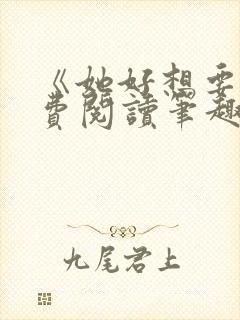 《她好想要
費閱讀筆趣
九尾君上